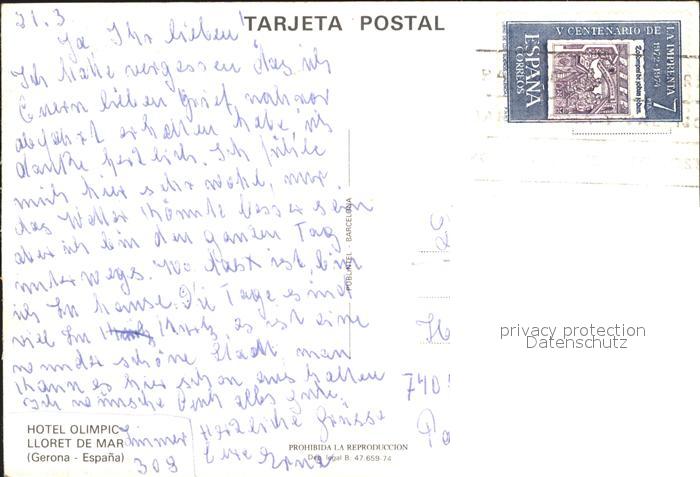 TARJETA POSTAL
21.3
Ja, Ihr lieben!
Ich hatte vergessen das ich
Euern lieben Brief, noch vor
abfahrt erhalten habe, ich
danke herzlich. Ich fühle
mich hier sehr wohl, nur
das Wetter könnte besser sein
aber ich bin den ganzen Tag
unterwegs. Wo Rast ist, bin
ich zu hause. Die Tage sind
viel zu kurz, es ist eine
wunder schöne Stadt man
kann es hier schon aus halten
Ich wünsche Euch alles gute.
Herzliche Grüsse
Eure Erna
Zimmer
308
HOTEL OLIMPIC
LLORET DE MAR
(Gerona - España)
PROHIBIDA LA REPRODUCION
Dep. legal B: 47.659-74
PUBLINTEL - BARCELONA
V CENTENARIO DE LA IMPRENTA
1972-1974
ESPAÑA
CORREOS
7
740
privacy protection
Datenschutz